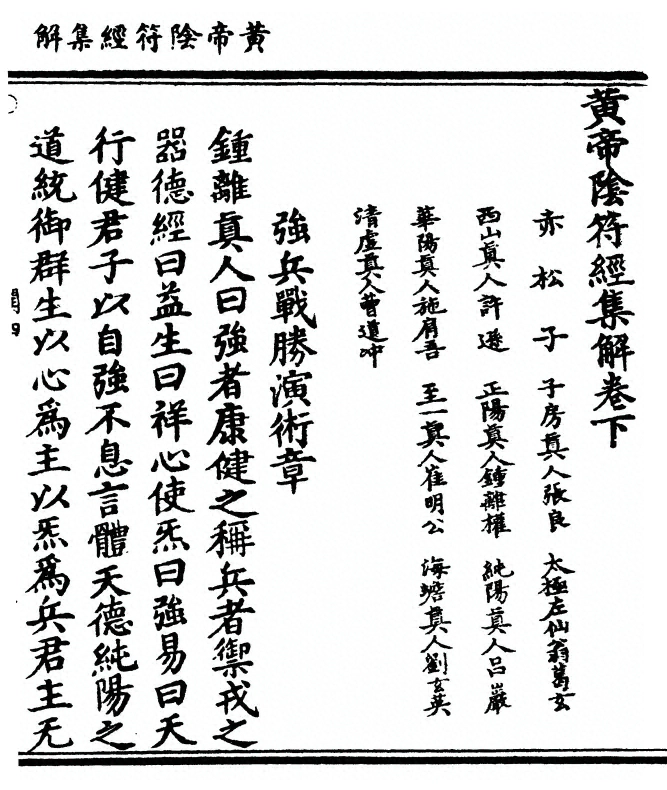 黃帝陰符經集解
黃帝陰符經集解卷下
赤松子 子房真人張良 太極左仙翁葛玄
西山真人許遜 正陽真人鍾離權 純陽真人呂巖
華陽真人施肩吾 至一真人崔明公 海蟾真人劉玄英
清虛真人曹道冲
強兵戰勝演術章
鍾離真人曰強者康健之稱兵者禦戎之
器德經曰益生曰祥心使炁曰強易曰天
行健君子以自強不息言體天德純陽之
道統御群生以心為主以炁為兵君主无
閏四